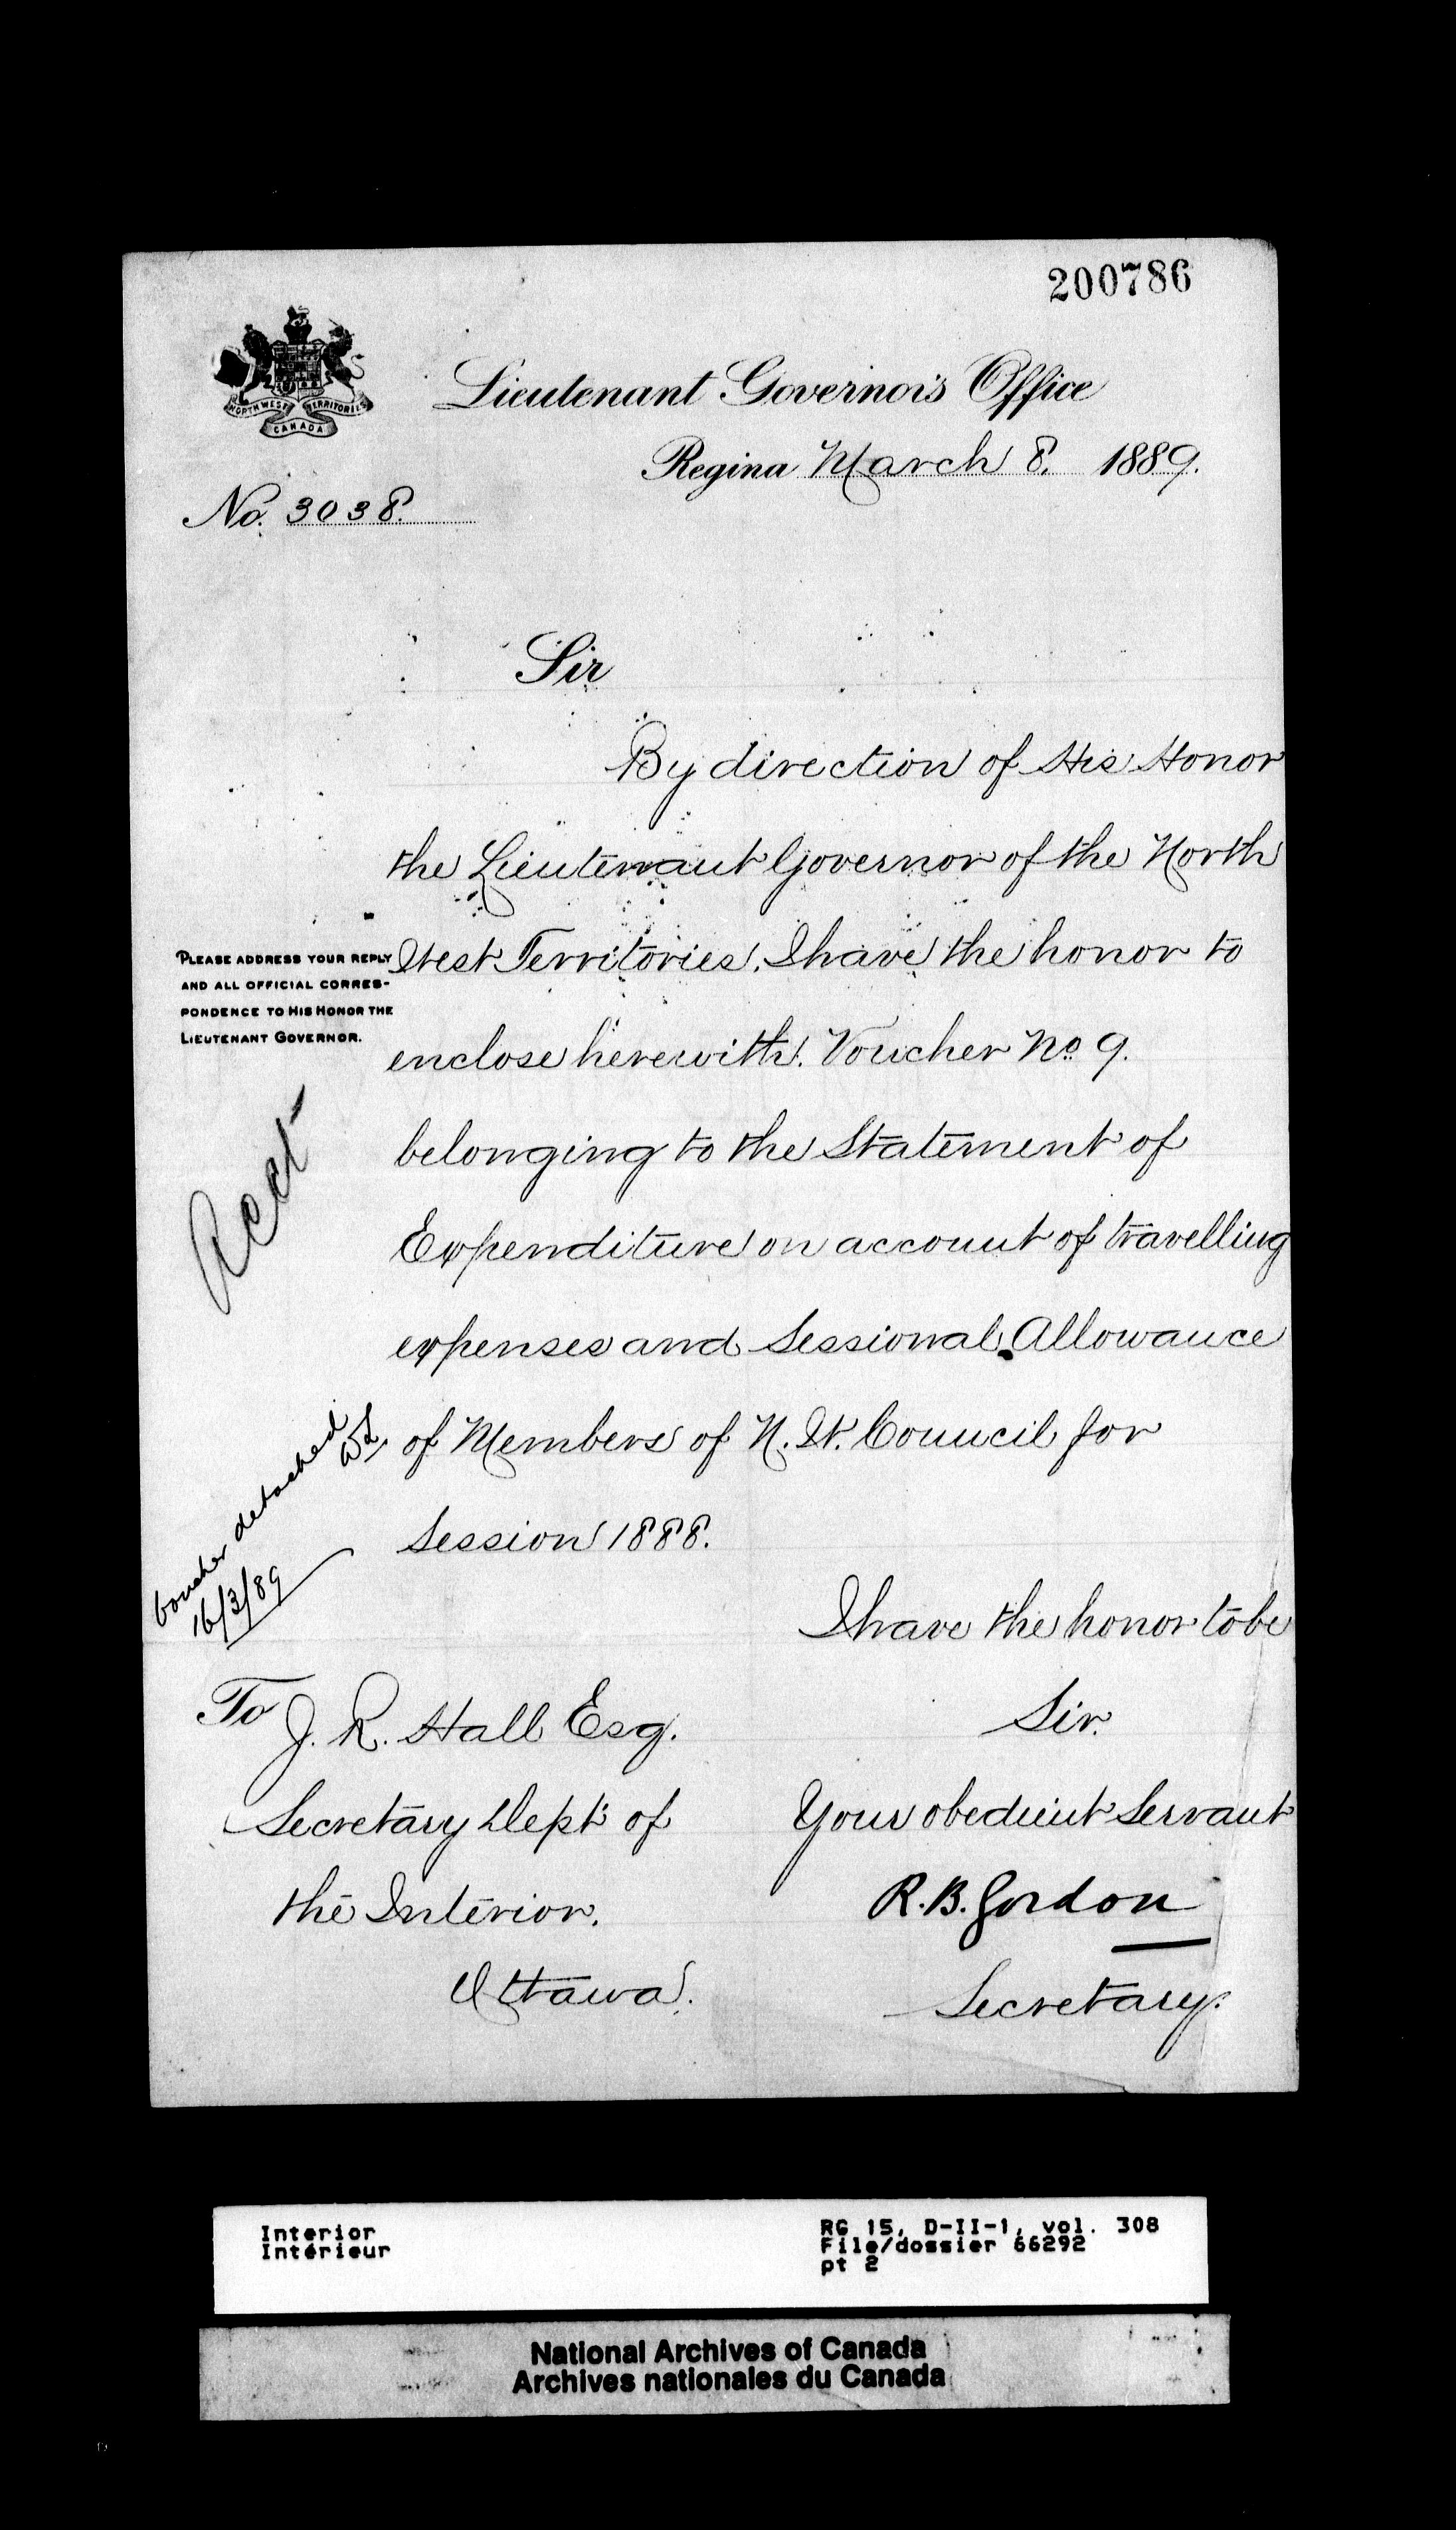 200786
NORTH WEST TERRITORIES
CANADA
Lieutenant Governor's Office
Regina March 8. 1889.
No. 3038.
Sir
By direction of His Honor
the Lieutenant Governor of the North
West Territories. I have the honor to
enclose herewith. Voucher No 9.
belonging to the Statement of
Expenditure on account of travelling
expenses and Sessional Allowance
of Members of N. W. Council for
Session 1888.
PLEASE ADDRESS YOUR REPLY
AND ALL OFFICIAL CORRES-
PONDENCE TO HIS HONOR THE
LIEUTENANT GOVERNOR.
Acct
Voucher detached
16/3/89
I have the honor to be
Sir.
Your obedient Servant
R.B. Gordon
Secretary.
To J. R. Hall Esq.
Secretary Dept of
the Interior.
Ottawa.
Interior
Intérieur
RG 15, D-II-1, vol. 308
File/dossier 66292
pt 2
National Archives of Canada
Archives nationales du Canada